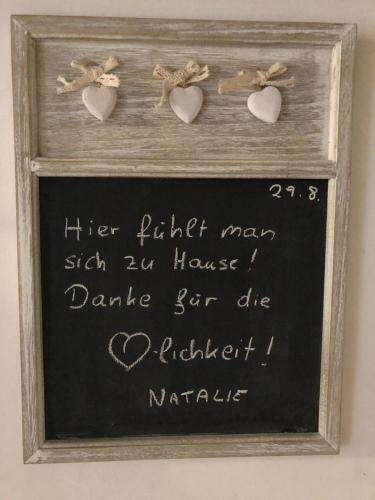 29.8.
Hier fühlt man
sich zu Hause!
Danke für die
♡-lichkeit!
NATALIE